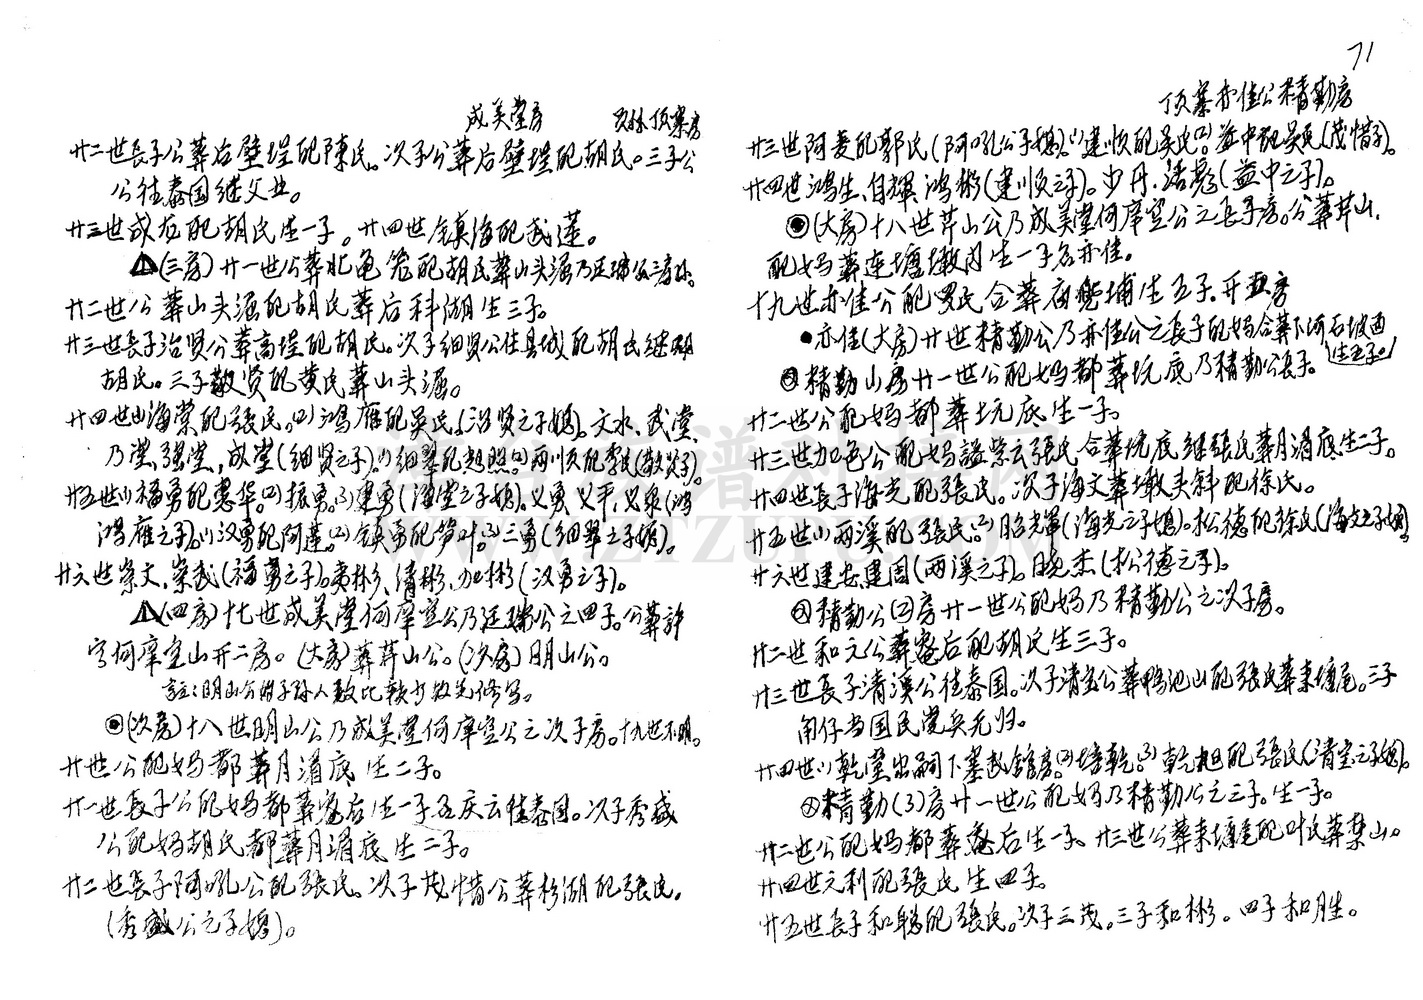 成美堂房 頂寨房
廿二世長子公葬后壁埕配陳氏。次子公葬后壁埕配胡氏。三子公
公往泰国继父业。
廿三世成龙配胡氏生一子。廿四世鎮海配武蓮。
(三房)廿一世公葬北龟咾配胡氏葬山头湯乃廷瑞公三房孙。
廿二世公葬山头湯配胡氏葬后科湖生三子。
廿三世長子治贤公葬高埕配胡氏。次子细贤公住县城配胡氏继
胡氏。三子敬贤配黄氏葬山头湯。
廿四世(1)海棠配張氏。(2)鸿雁配吴氏(治贤之子媳)。文水、武堂、
乃堂、强堂,成堂(细贤之子)。(1)细翠配旭照(2)兩順配李氏(敬贤子)。
廿五世(1)福勇配惠华。(2)振勇。(3)建勇(海堂之子媳)。义勇、义平、义泉(鸿
鸿雁之子)。(1)汉勇配阿蓮。(2)鎮勇配笋叶。(3)三勇(细翠之子媳)。
廿六世崇文、崇武(福勇之子)。勇彬、清彬、加彬(汉勇之子)。
(四房)十七世成美堂何摩室公乃廷瑞公之四子。公葬許
宅何摩室山开二房。(大房)葬芹山公。(次房)明山公。
註:明山公的子孙人数比較少故先修写。
(次房)十八世明山公乃成美堂何摩室公之次子房。十九世不明。
廿世公配妈都葬月湄底生二子。
廿一世長子公配妈都葬鶱后生一子名庆云住泰国。次子秀盛
公配妈胡氏都葬月湄底生二子。
廿二世長子阿吼公配張氏。次子茂惜公葬杉湖配張氏。
(秀盛公之子媳)。
71
頂寨亦佳公精勤房
廿三世阿麦配郭氏(阿吼公子媳)。(1)建顺配吴氏(2)益中配吴氏(茂惜子)。
廿四世鸿生、自輝、鸿彬(建順之子)。少丹、浩彪(益中之子)。
(大房)十八世芹山公乃成美堂何摩室公之長子房。公葬芹山,
配妈葬连塘墩内生一子名亦佳。
十九世亦佳公配罗氏合葬后壁埔生五子.开五房
亦佳(大房)廿世精勤公乃亦佳公之長子配妈合葬下河石坡西
生五子。
精勤(1)房廿一世公配妈都葬坑底乃精勤公長子。
廿二世公配妈都葬坑底生一子。
廿三世加色公配妈諡紫云張氏合葬坑底继張氏葬月湄底生二子。
廿四世長子海光配張氏。次子海文葬墩头斜配徐氏。
廿五世(1)兩溪配張氏。(2)昭輝(海光之子媳)。松德配徐氏(海文子媳)。
廿六世建安、建周(兩溪之子)。曉杰(松德之子)。
精勤公(2)房廿一世公配妈乃精勤公之次子房。
廿二世和元公葬鶱后配胡氏生三子。
廿三世長子清溪公往泰国。次子清宝公葬鸭池山配張氏葬東塘尾。三子
角仔当国民党兵无归。
廿四世(1)乾堂出嗣下寨武舘房。(2)培乾。(3)乾旭配張氏(清宝之子媳)。
精勤(3)房廿一世公配妈乃精勤公之三子。生一子。
廿二世公配妈都葬鶱后生一子。廿三世公葬東塘尾配叶氏葬焚山。
廿四世元利配張氏生四子。
廿五世長子和聪配張氏。次子三茂。三子和彬。四子和胜。